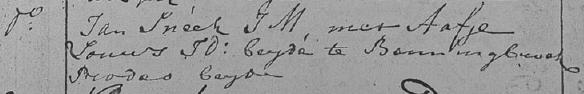 do Jan Sneek J M met Aafje
Louws JD: beyde te Benningbroek
Prodeo beyde